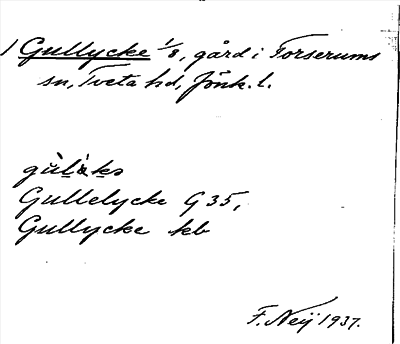 1 Gullycke 1/8, gård i Torserums
sn, Tveta hd, Jönk. l.
Gullelycke G 35,
Gullycke kb
F. Neij 1937.